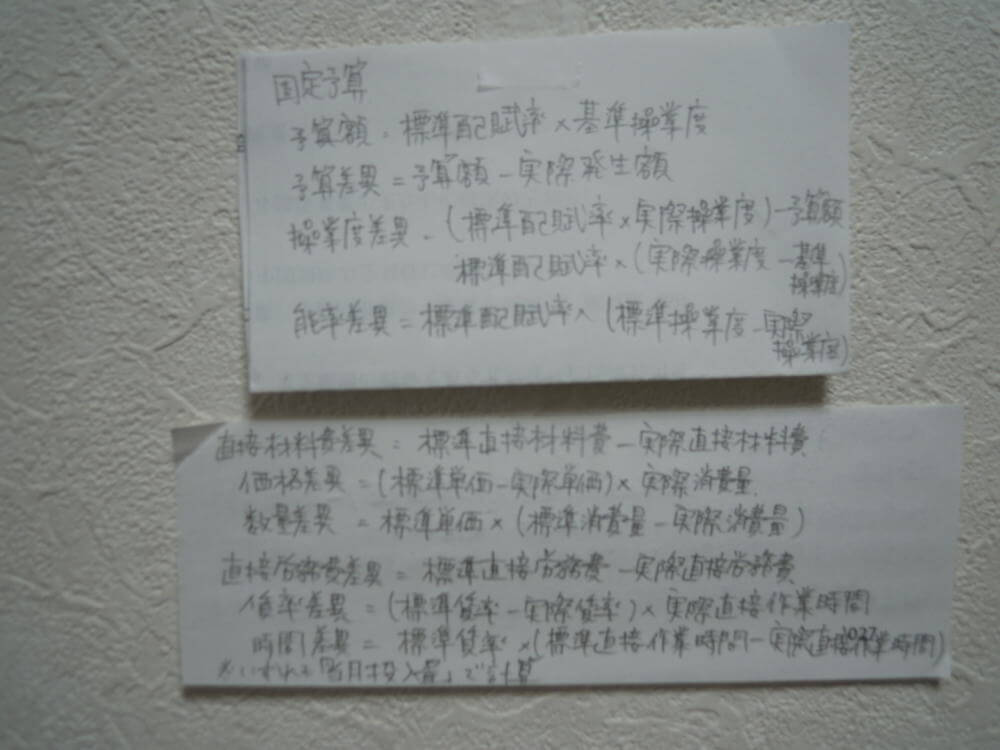 固定予算
予算額 = 標準配賦率×基準操業度
予算差異 = 予算額 - 実際発生額
操業度差異 = (標準配賦率×実際操業度) - 予算額
標準配賦率×(実際操業度 - 基準
操業度)
能率差異 = 標準配賦率×(標準操業度 - 実際
操業度)
直接材料費差異 = 標準直接材料費 - 実際直接材料費
価格差異 = (標準単価 - 実際単価)×実際消費量
数量差異 = 標準単価×(標準消費量 - 実際消費量)
直接労務費差異 = 標準直接労務費 - 実際直接労務費
賃率差異 = (標準賃率 - 実際賃率)×実際直接作業時間
時間差異 = 標準賃率×(標準直接作業時間 - 実際直接作業時間)
※いずれも「当月投入量」で計算